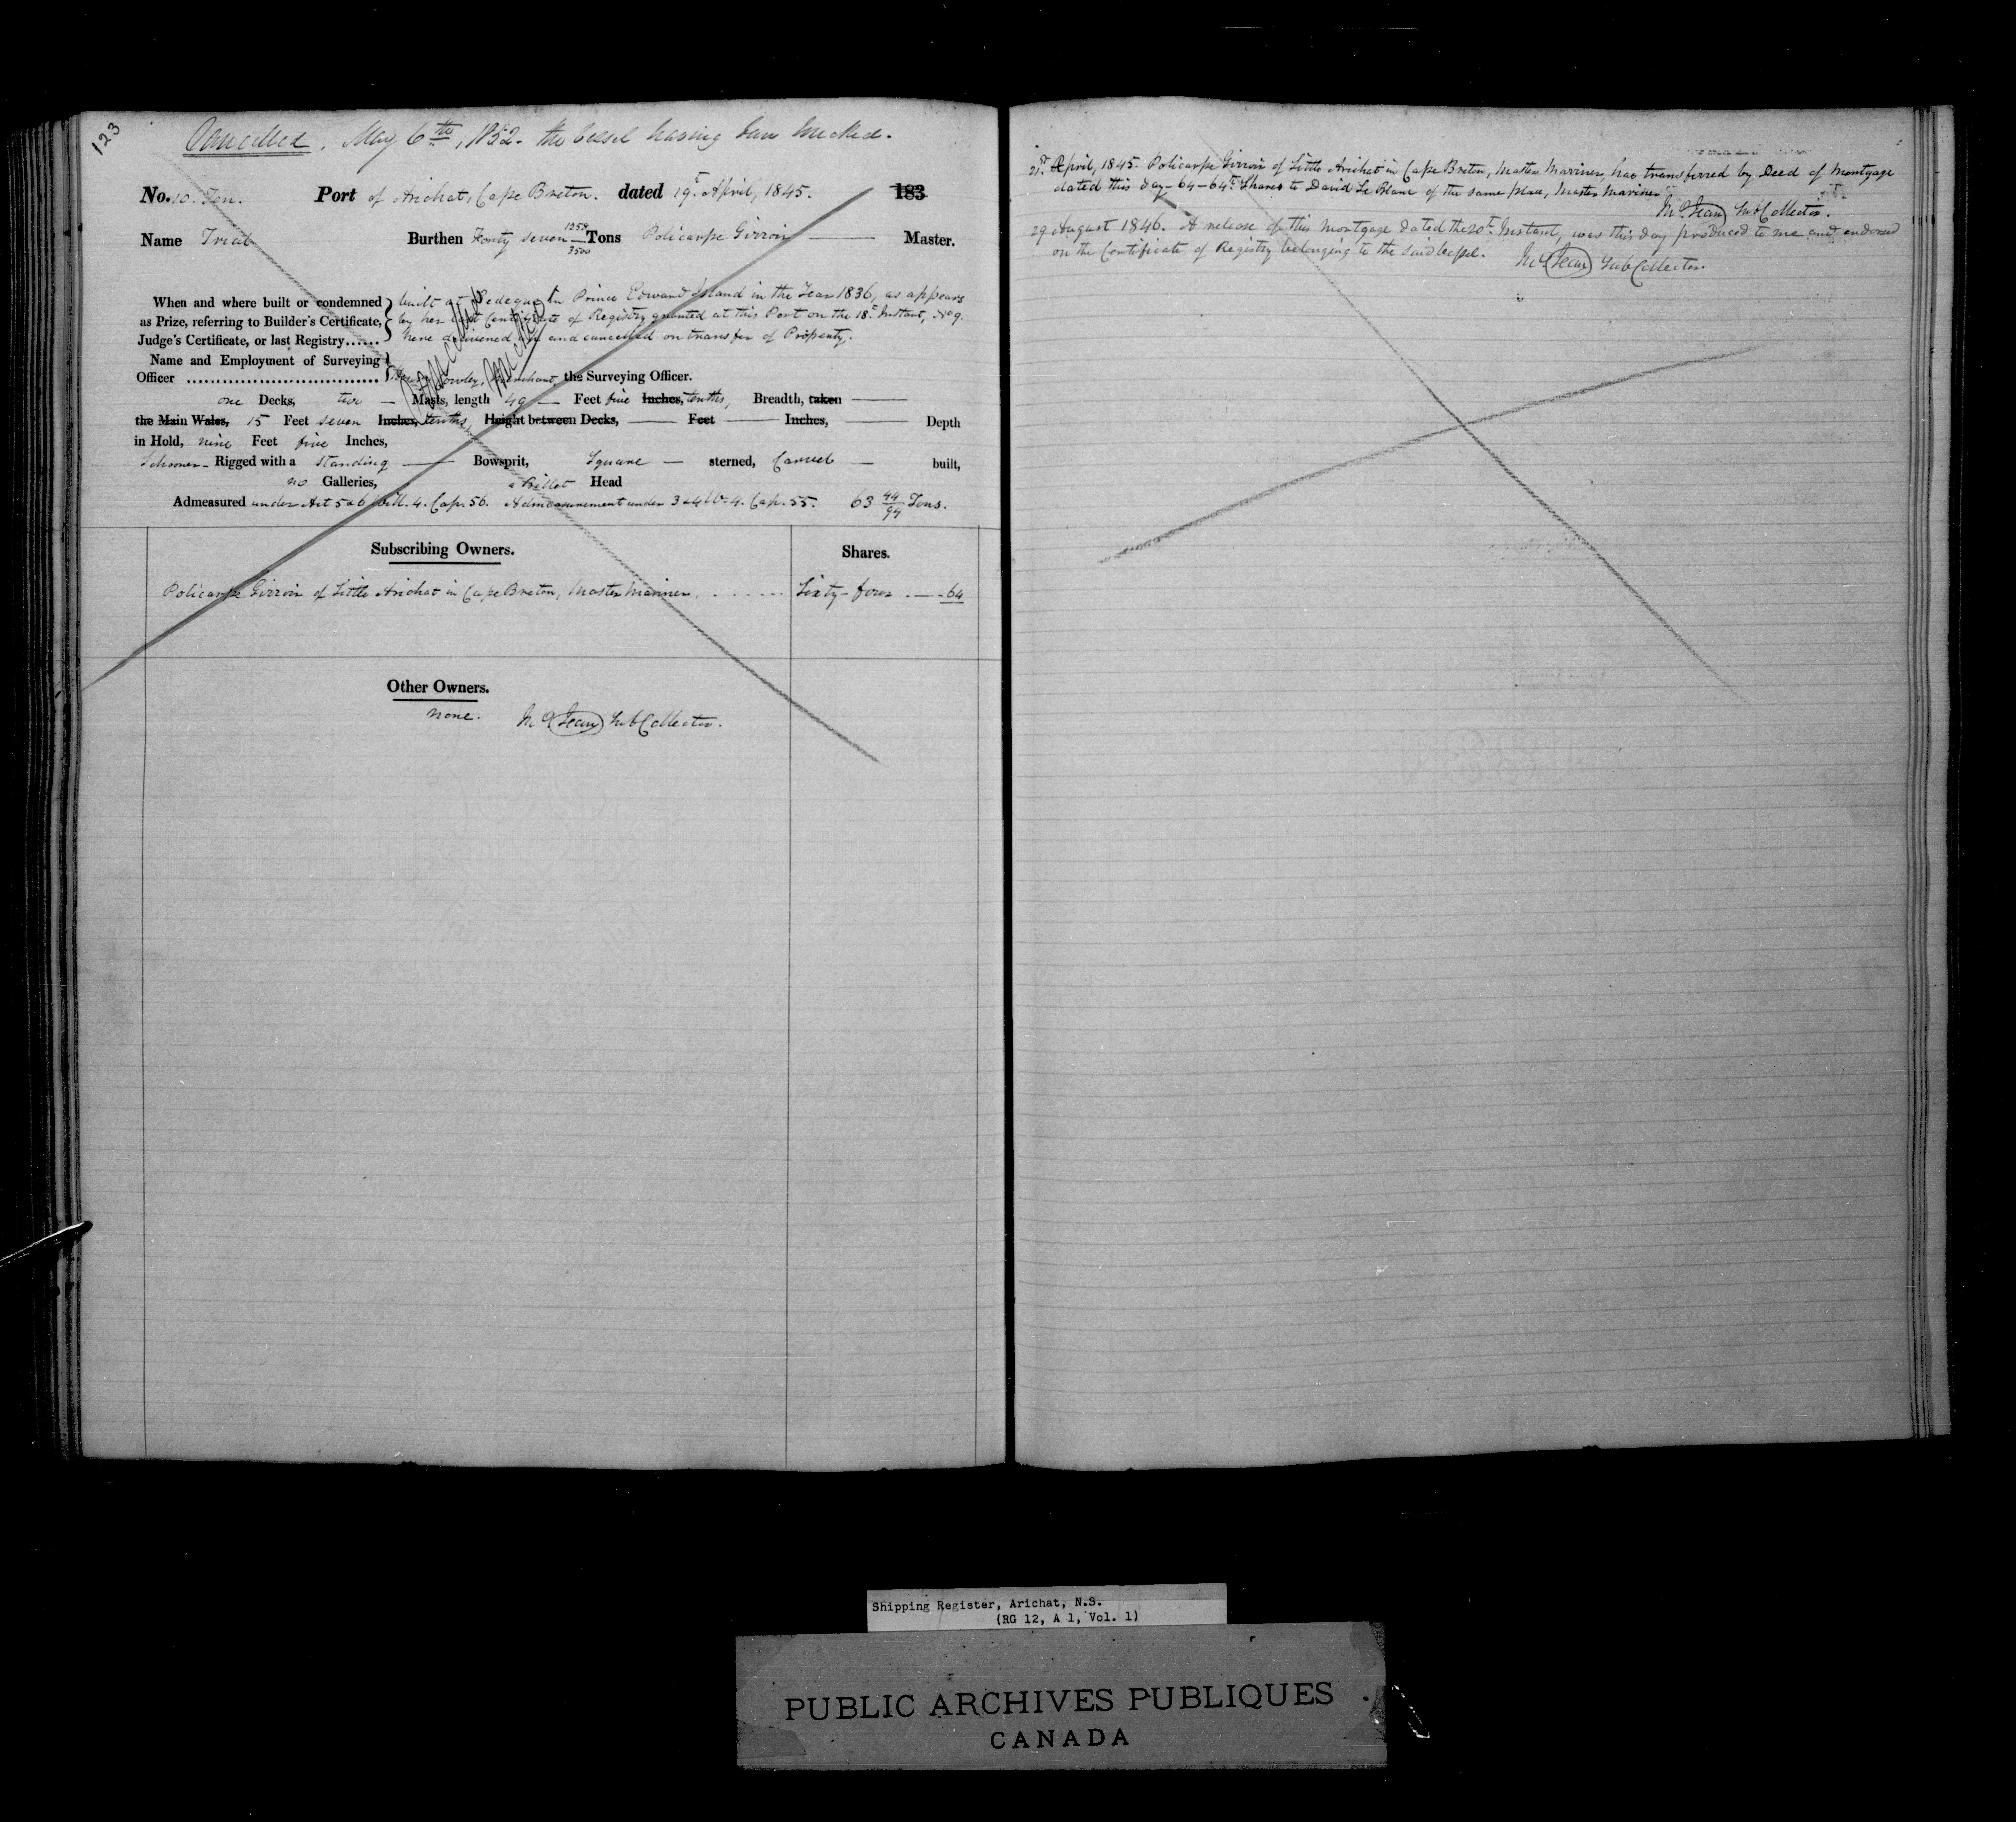 123
Cancelled. May 6th, 1852. the vessel having been wrecked.
No. 10. Ten. Port of Arichat, Cape Breton. dated 19th April, 1845. 183
Name Trial Burthen Forty seven 1358/3500 Tons Policarpe Girroir Master.
When and where built or condemned as Prize, referring to Builder's Certificate, Judge's Certificate, or last Registry......
built at Bedeque in Prince Edward Island in the Year 1836, as appears
by her last Certificate of Registry granted at this Port on the 18th Instant, No 9.
here delivered up and cancelled on transfer of Property.
Cancelled
Wrecked
Name and Employment of Surveying
Officer ................................ Merchant, the Surveying Officer.
one Decks, two — Masts, length 49 — Feet five Inches, tenths, Breadth, taken
the Main Wales, 15 Feet seven Inches, tenths, Height between Decks, — Feet — Inches, — Depth
in Hold, nine Feet five Inches,
Schooner - Rigged with a standing — Bowsprit, Square — sterned, Carvel — built,
no Galleries, a Billet Head
Admeasured under Act 5 & 6 Will. 4. Cap. 56. Admeasurement under 3 & 4 W. 4. Cap. 55. 63 44/94 Tons.
Subscribing Owners. Shares.
Policarpe Girroir of Little Arichat in Cape Breton, Master Mariner. Sixty-four — 64
Other Owners.
none. Sub Collector.
21st April, 1845. Policarpe Girroir of Little Arichat in Cape Breton, Master Mariner, has transferred by Deed of Mortgage
dated this day - 64-64th Shares to David Le Blanc of the same place, Master Mariner
Sub Collector.
29 August 1846. A release of this Mortgage dated the 20th Instant, was this day produced to me and endorsed
on the Certificate of Registry belonging to the said vessel. Sub Collector.
Shipping Register, Arichat, N.S.
(RG 12, A 1, Vol. 1)
PUBLIC ARCHIVES PUBLIQUES
CANADA